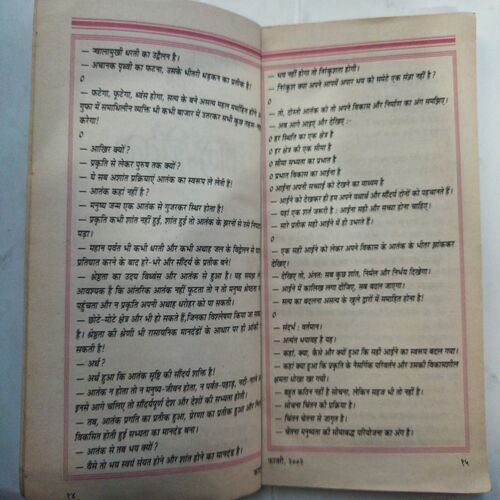 – ज्वालामुखी धरती का उद्वेलन है।
– अचानक पृथ्वी का फटना, उसके भीतरी धड़कन का प्रतीक है।
०
– फटेगा, फूटेगा, ध्वंस होगा, सत्य के बने असत्य महल मर्माहित होंगे और
गुफा में समाधिलीन व्यक्ति भी कभी बाजार में उतरकर सभी कुछ तहस-नहस
करेगा!
०
– आखिर क्यों?
– प्रकृति से लेकर पुरुष तक क्यों?
– ये सब अशांत प्रक्रियाएं आतंक का स्वरूप ले लेती हैं!
– आतंक कहां नहीं है?
– मनुष्य जन्म एक आतंक से गुजरकर स्थिर होता है!
– प्रकृति कभी शांत नहीं हुई, शांत हुई तो आतंक के झरनों से उसे निपटना
पड़ा।
– महान पर्वत भी कभी धरती और कभी अथाह जल के विद्वेलन से घात
प्रतिघात करने के बाद हरे-भरे और सौंदर्य के प्रतीक बने!
– श्रेष्ठता का उदय विध्वंस और आतंक से हुआ है। यह समझ लेना
आवश्यक है कि आंतरिक आतंक नहीं फूटता तो न तो मनुष्य श्रेष्ठता तक
पहुंचता और न प्रकृति अपनी अथाह धरोहर को पा सकती।
– छोटे-मोटे क्षेत्र और भी हो सकते हैं, जिनका विश्लेषण किया जा सकता
है। श्रेष्ठता की श्रेणी भी रासायनिक मानदंडों के आधार पर ही आंकी जा
सकती है!
– अर्थ?
– अर्थ हुआ कि आतंक सृष्टि की सौंदर्य शक्ति है!
– आतंक न होता तो न मनुष्य-जीवन होता, न पर्वत-पहाड़, नदी-नाले और
इनसे आगे चलिए तो सौंदर्यपूर्ण देश और देशों की सभ्यता होती।
– तब, आतंक प्रगति का प्रतीक हुआ, प्रेरणा का प्रतीक हुआ और निरंतर
विकसित होती हुई सभ्यता का मानदंड बना।
– आतंक से तब भय क्यों?
– वैसे तो भय स्वयं संयत होने और शांत होने का मानदंड है।
१४
– भय नहीं होगा तो निरंकुशता होगी।
– निरंकुश क्या अपने आपमें अपार भय को समेटे एक संज्ञा नहीं है?
०
– तो, दोस्तो आतंक को तो अपने विकास और निर्माण का अंग समझिए।
– अब आगे आइए और देखिए :-
० हर स्थिति का एक क्षेत्र है
० हर क्षेत्र की एक सीमा है
० सीमा सभ्यता का प्रभात है
० प्रभात विकास का आईना है
० आईना अपनी सच्चाई को देखने का माध्यम है
– आईने को देखकर ही हम अपने यथार्थ और सौंदर्य दोनों को पहचानते हैं।
– यहां एक शर्त जरूरी है : आईना सही और सच्चा होना चाहिए।
– सारे प्रतीक सही आईने में ही उभरते हैं।
०
– एक सही आईने को लेकर अपने विकास के आतंक के भीतर झांककर
देखिए।
– देखिए तो, अंततः सब कुछ शांत, निर्मल और निर्भय दिखेगा।
– आईने में कालिख लगा दीजिए, सब बदल जाएगा।
– सत्य का बदलना असत्य के खुले द्वारों में समाहित होना है!
०
– संदर्भ : वर्तमान।
– अत्यंत भयावह है यह।
– कहां, क्या, कैसे और क्यों हुआ कि सही आईने का स्वरूप बदल गया।
– कहां क्या हुआ कि प्रकृति के नैसर्गिक परिवर्तन और उसकी विकासशील
क्षमता धोखा खा गयी।
– बहुत कठिन नहीं है सोचना, लेकिन सहज भी तो नहीं है।
– सोचना चिंतन की प्रक्रिया है।
– चिंतन चेतना से जागृत है।
– चेतना मनुष्यता की सीमाबद्ध परियोजना का अंग है।
फरवरी, २००२
१५